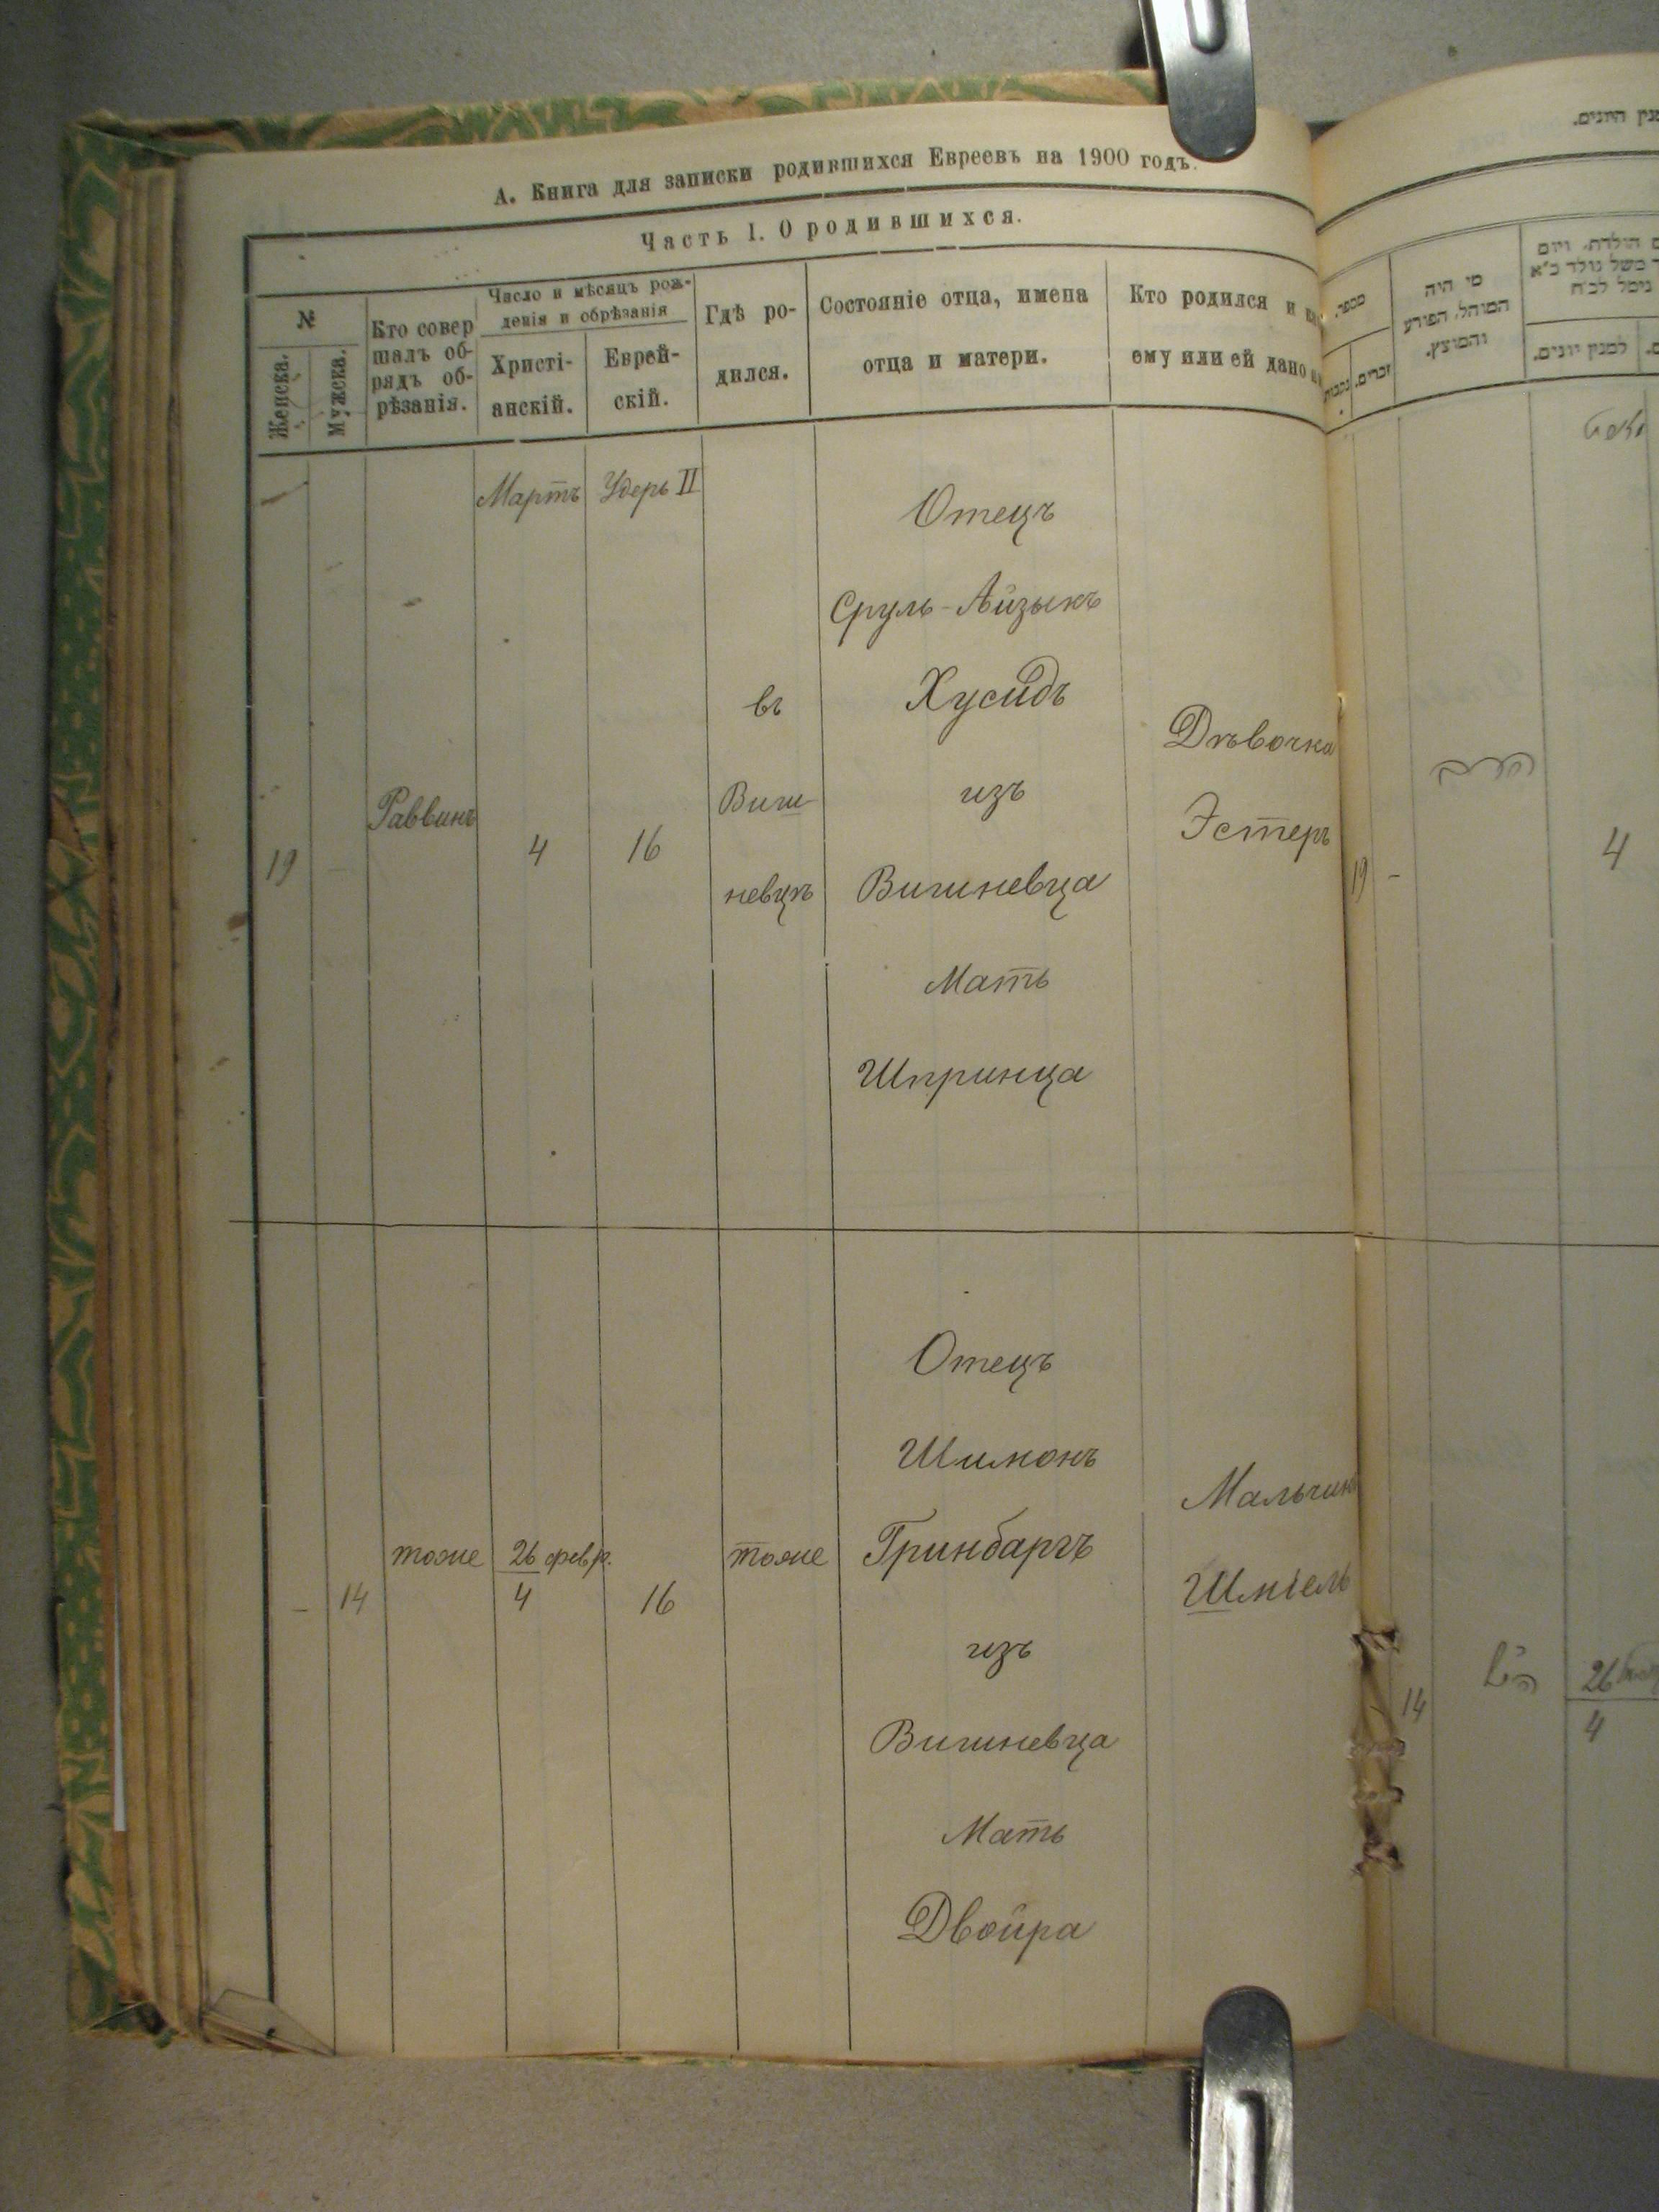 А. Книга для записки родившихся Евреевъ на 1900 годъ.
Часть I. О родившихся.
№
Женска.
Мужска.
Кто совер
шалъ об-
рядъ об-
рѣзанія.
Число и мѣсяцъ рож-
денія и обрѣзанія
Христі-
анскій.
Еврей-
скій.
Гдѣ ро-
дился.
Состояніе отца, имена
отца и матери.
Кто родился и
ему или ей дано
Мартъ
Удерь II
19
-
Раввинъ
4
16
въ
Виш-
невцѣ
Отецъ
Сруль-Айзыкъ
Хусидъ
изъ
Вишневца
Мать
Шпринца
Дѣвочка
Эстеръ
-
14
тоже
26 февр.
4
16
тоже
Отецъ
Шимонъ
Гринбаргъ
изъ
Вишневца
Мать
Двойра
Мальчик
Шміель
מספר.
זכרים.
מי היה
המוהל, הפורע
והמוצץ.
למנין יונים.
מנין היונים.
19 -
4
14
26
4